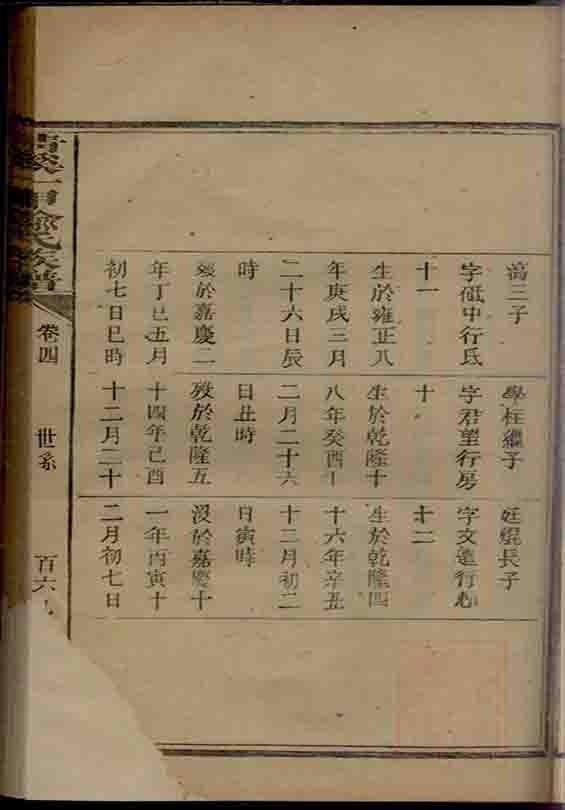 三子
字砥中行氐
十一
生於雍正八
年庚戌三月
二十六日辰
時
歿於嘉慶二
年丁巳五月
初七日巳時
學柱繼子
字君望行房
十
生於乾隆十
八年癸酉十
二月二十六
日丑時
歿於乾隆五
十四年己酉
十二月二十
廷焜長子
字文遠行心
十二
生於乾隆四
十六年辛丑
十二月初二
日寅時
沒於嘉慶十
一年丙寅十
二月初七日
氏家譜
卷四
世系
百六